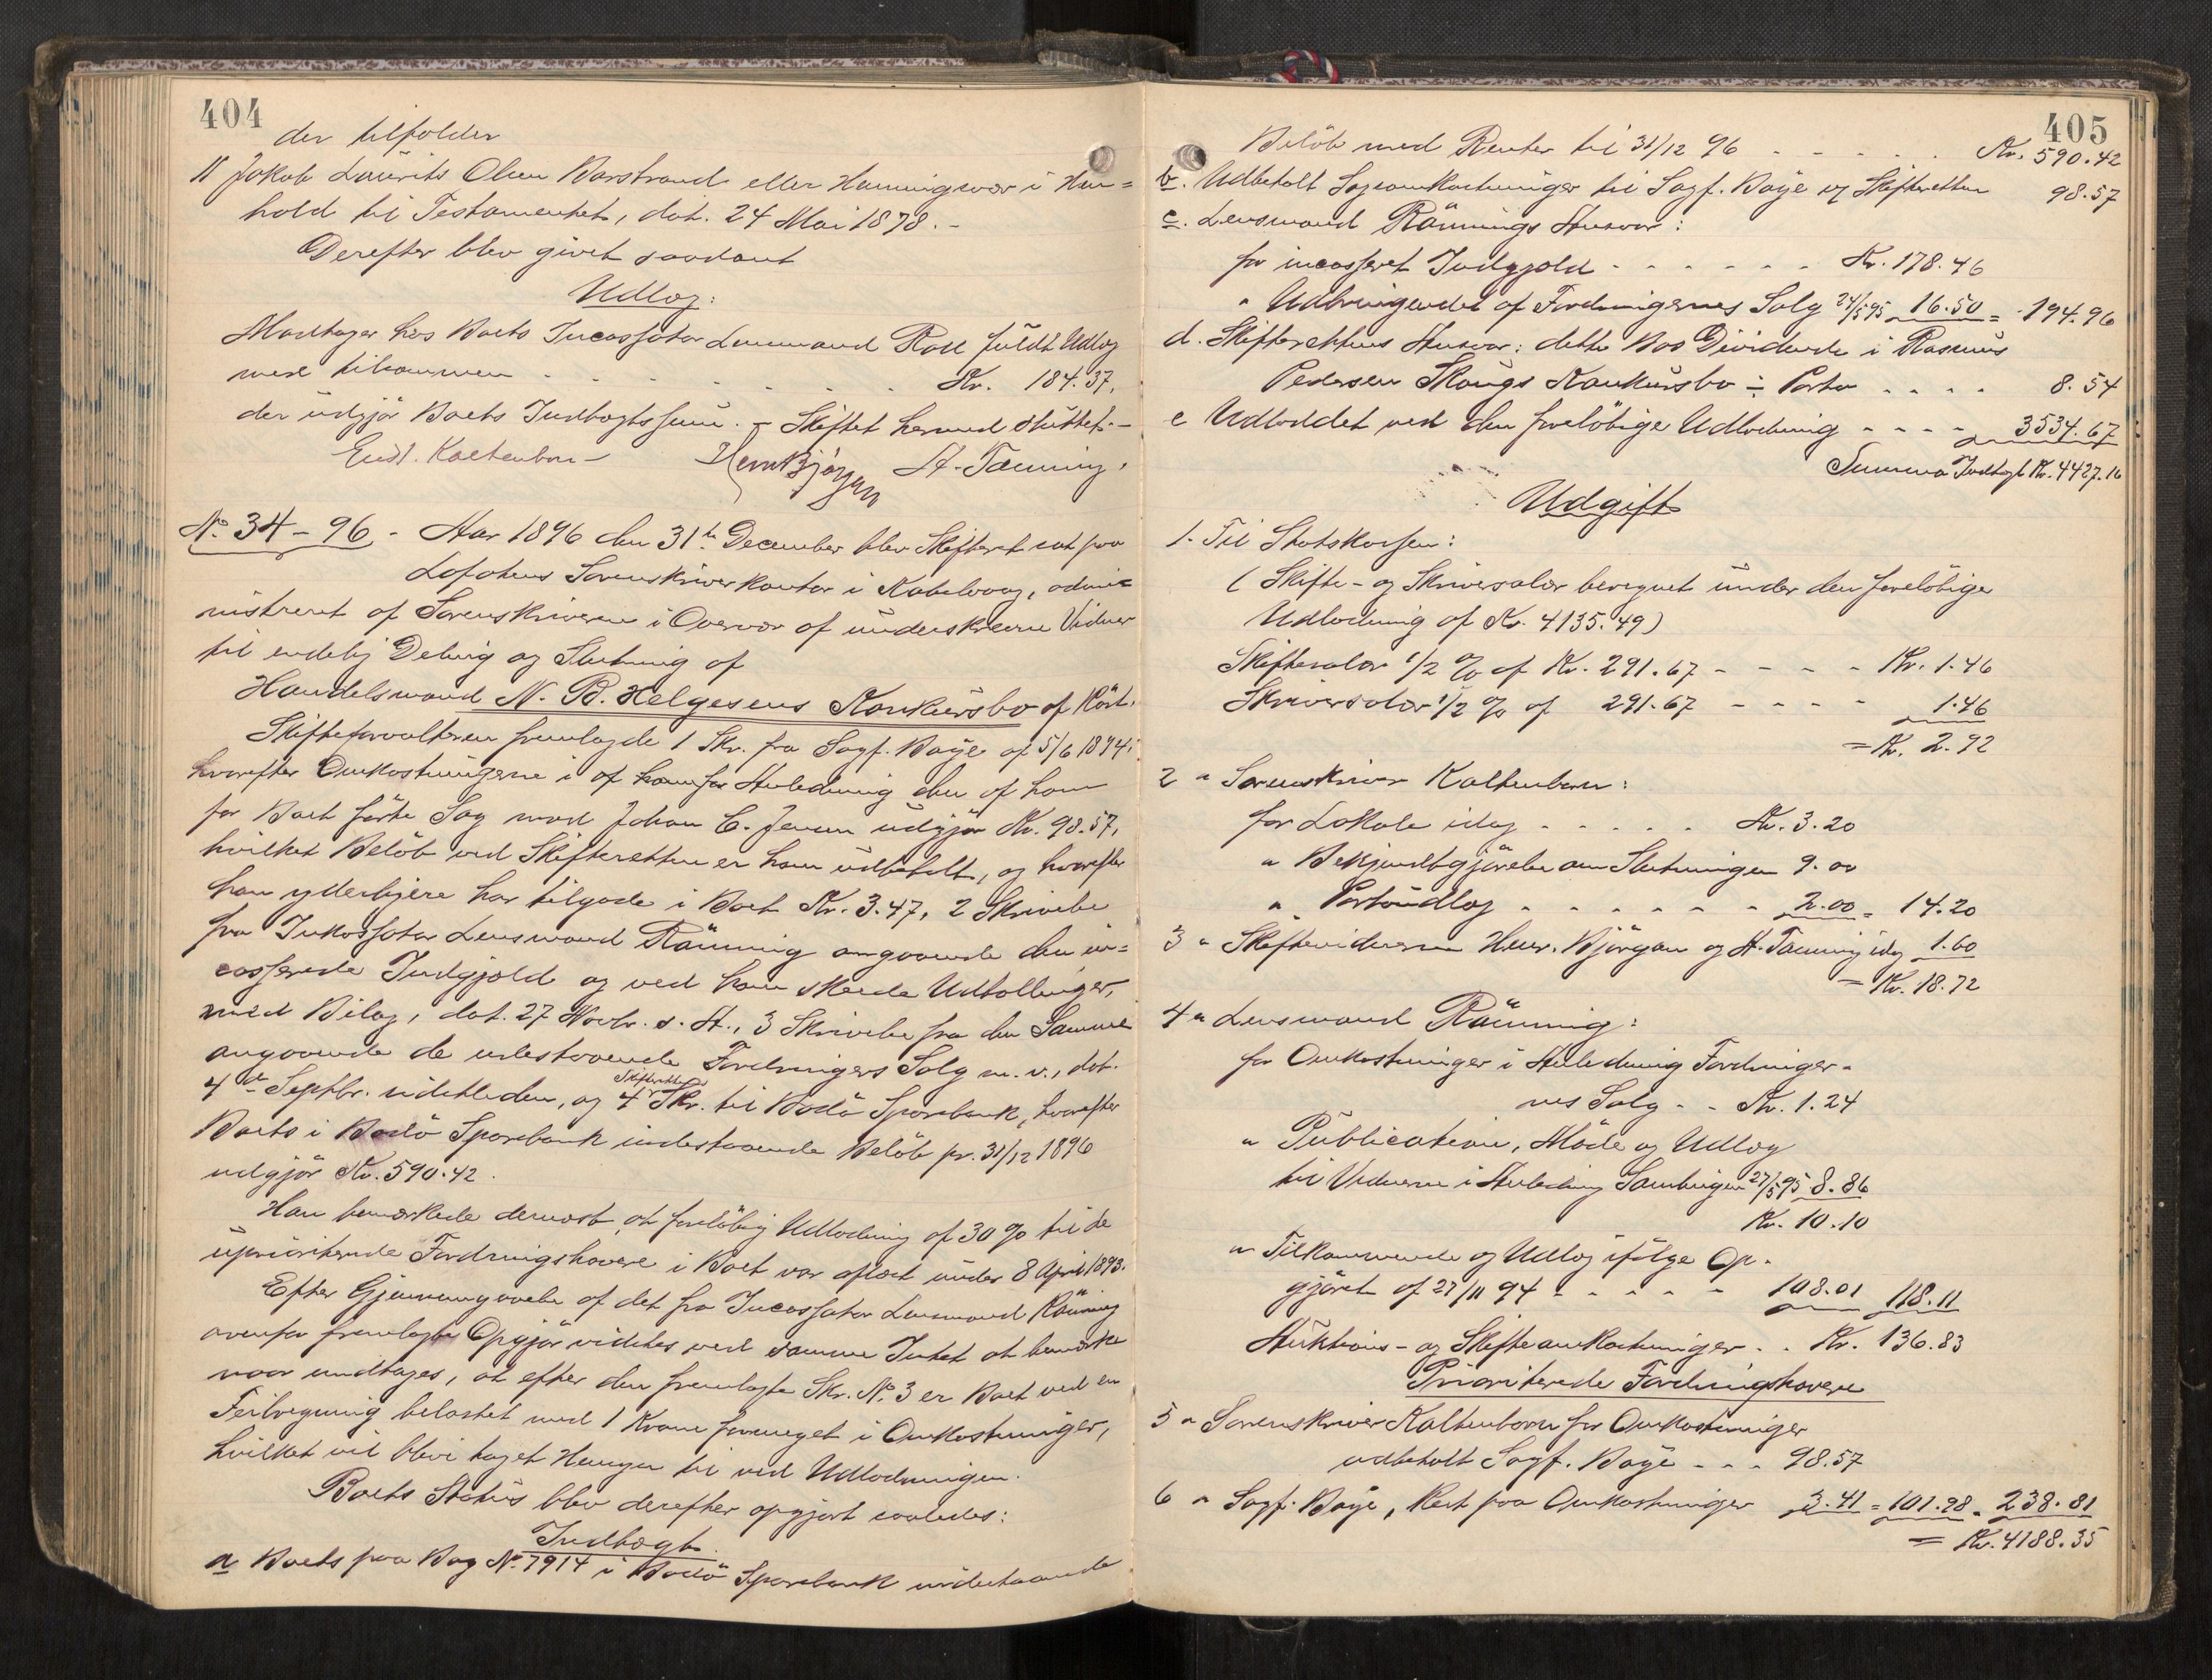 404
der tilfalder
11 Jakob Laurits Olsen Barstrand eller Henningsvær i Hen=
hold til Testamentet, dat. 24 Mai 1878.-
Derefter blev givet saadant
Udlæg:
Modtager hos Boets Incassator Lensmand Roll fuldt Udlæg
med tilkommen - - - - - - Kr. 184.37,
der udgjør Boets Indtægtssum. - Skiftet hermed sluttet.-
Eivd. Kaltenborn- HenrBjørgan A. Tanning.
No 34-96. - Aar 1896 den 31te December blev Skifteret sat paa
Lofotens Sorenskriverkontor i Kabelvaag, admi=
nistreret af Sorenskriveren i Overvær af underskrevne Vidner
til endelig Deling og Slutning af
Handelsmand N. B. Helgesens Konkursbo af Röst.
Skifteforvalteren fremlagde 1 Skr. fra Sagf. Bøye af 5/6 1894,
hvorefter Omkostningerne i af ham for Anledning den af ham
for Boet förte Sag mod Johan C. Jensen udgjör Kr. 98.57,
hvilket Belöb ved Skifteretten er ham udbetalt, og hvorefter
han yderligere har tilgode i Boet Kr. 3.47, 2 Skrivelse
fra Inkassator Lensmand Rönning angaaende den in=
casserede Indgjæld og ved ham skeede Udtællinger,
med Bilag, dat. 27 Novbr. s. A., 3 Skrivelse fra den Samme
angaaende de udestaaende Fordringers Salg m. v., dat.
4de Septbr. sidstleden, og 4 Skifterettens Skr. til Bodö Sparebank, hvorefter
Boets i Bodö Sparebank indestaaende Belöb pr. 31/12 1896
udgjör Kr. 590.42.
Han bemærkede dernæst, at forelöbig Udlodning af 30 % til de
uprioriterede Fordringshavere i Boet var afløst under 8 April 1893.
Efter Gjennemgaaelse af det fra Incassator Lensmand Rönning
ovenfor fremlagte Opgjör vidstes ved samme Intet at bemærke
naar undtages, at efter den fremlagte Skr. No. 3 er Boet ved en
Feilregning belastet med 1 Krone formeget i Omkostninger,
hvilket vil blive taget Hensyn til ved Udlodningen.
Boets Status blev derefter opgjort saaledes:
Indtægt.
a Boets paa Bog No. 7914 i Bodö Sparebank indestaaende
405
Belöb med Renter til 31/12 96 - - - - - Kr. 590.42
b. Udbetalt Sagsomkostninger til Sagf. Bøye af Skifteretten 98.57
c. Lensmand Rönnings Ansvar:
for incasseret Indgjæld - - - - - - Kr. 178.46
" Udbringendet af Fordringernes Salg 24/5 95 16.50 = 194.96
d. Skifterettens Ansvar: dette Bos Dividende i Rasmus
Pedersen Skaugs Konkursbo ÷ Porto - - - - 8.54
e Udloddet ved den forelöbige Udlodning - - - - 3534.67
Summa Indtægt Kr. 4427.16
Udgift
1. Til Statskassen:
(Skifte- og Skriversalær beregnet under den forelöbige
Udlodning af Kr. 4135.49)
Skiftesalær 1/2 % af Kr. 291.67 - - - - Kr. 1.46
Skriversalær 1/2 % af 291.67 - - - - 1.46
= Kr. 2.92
2 " Sorenskriver Kaltenborn:
for Lokale idag - - - - - Kr. 3.20
" Bekjendtgjörelse om Slutningen 9.00
" Portoudlæg - - - - - - 2.00 = 14.20
3 " Skiftevidnerne Henr. Bjørgan og A. Tanning idag 1.60
= Kr. 18.72
4 " Lensmand Rönning:
for Omkostninger i Anledning Fordringer-
nes Salg - - Kr. 1.24
" Publication, Möde og Udlæg
til Vidnerne i Anledning Samlingen 27/5 95 8.86
Kr. 10.10
" Tilkommende og Udlæg ifølge Op-
gjöret af 27/11 94 - - - - - 108.01 118.11
Auktions- og Skifteomkostninger - - Kr. 136.83
Prioriterede Fordringshavere
5 " Sorenskriver Kaltenborn for Omkostninger
udbetalt Sagf. Bøye - - - 98.57
6 " Sagf. Bøye, Rest paa Omkostninger 3.41 = 101.98 = 238.81
= Kr. 4188.35